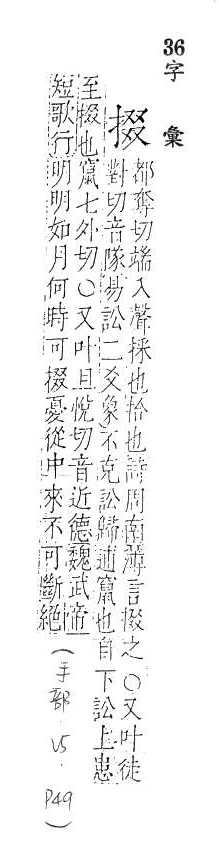 36字彙
掇 都奪切端入聲採也拾也詩周南薄言掇之○又叶徒
對切音隊易訟二爻象不克訟歸逋竄也自下訟上患
至掇也竄七外切○又叶且悅切音近德魏武帝
短歌行明明如月何時可掇憂從中來不可斷絕(手部.V5.P49)